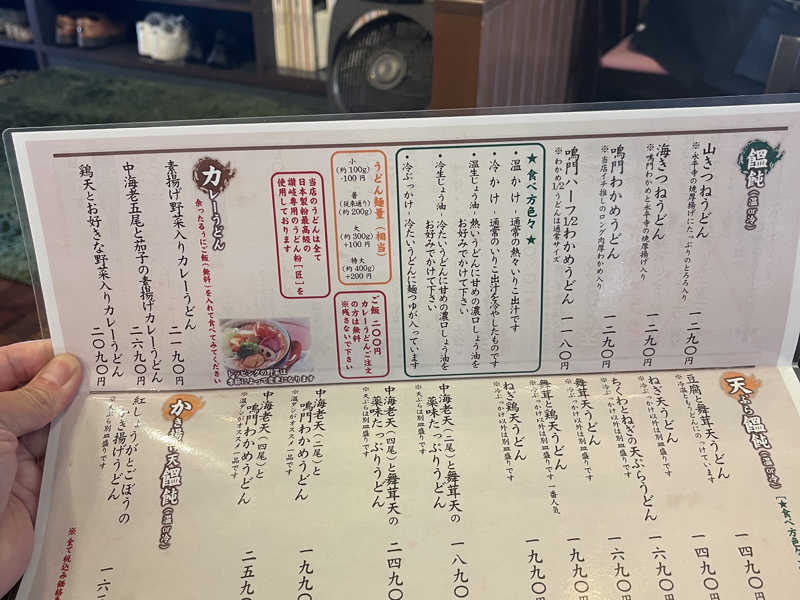 饂飩(温or冷)
山きつねうどん 一二九〇円
※永平寺の焼厚揚げにたっぷりのとろろ入り
海きつねうどん 一二九〇円
※鳴門わかめと永平寺の焼厚揚げ入り
鳴門わかめうどん 一二九〇円
※当店イチ推しのロング肉厚わかめ入り
鳴門ハーフ1/2わかめうどん 一一八〇円
※わかめ1/2うどんは通常サイズ
★食べ方色々★
・温かけ - 通常の熱々いりこ出汁です
・冷かけ - 通常のいりこ出汁を冷やしたものです
・温生じょうゆ - 熱いうどんに甘めの濃口しょう油を
お好みでかけて下さい
・冷生じょう油 - 冷たいうどんに甘めの濃口しょう油を
お好みでかけて下さい
・冷ぶっかけ - 冷たいうどんに麺つゆが入っています
うどん麺量(相当)
小
(約100g)
-100円
普
(従来通り)
(約200g)
大
(約300g)
+100円
特大
(約400g)
+200円
ご飯 二〇〇円
カレーうどんご注文
の方は無料
※残さないで下さい
当店のうどんは全て
日本製粉最高級の
讃岐専用のうどん粉[匠]を
使用しております
トッピングの野菜は
季節によって変更になります
カレーうどん
余ったるうにご飯(無料)を入れて食べてみてください
素揚げ野菜入りカレーうどん 二一九〇円
中海老五尾と茄子の素揚げカレーうどん 二六九〇円
鶏天とお好きな野菜入りカレーうどん 二〇九〇円
天ぷら饂飩(温or冷)
[★食べ方色々
豆腐と舞茸天うどん 一四九〇
ねぎ天うどん 一四九〇
※冷ぶっかけ以外は別皿盛りです
ちくわとねぎの天ぷらうどん 一六九〇
※冷ぶっかけ以外は別皿盛りです
舞茸天うどん 一六九〇
※冷ぶっかけ以外は別皿盛りです
舞茸と鶏天うどん 一九九〇
※冷ぶっかけ以外は別皿盛りです 一番人気
ねぎ鶏天うどん 一九九〇
※冷ぶっかけ以外は別皿盛りです
中海老天(二尾)と舞茸天の
薬味たっぷりうどん 一八九〇
※天ぷらは別皿盛りです
中海老天(四尾)と舞茸天の
薬味たっぷりうどん 二四九〇
※天ぷらは別皿盛りです
中海老天(二尾)と
鳴門わかめうどん 一九九〇
※温アンがオススメ一品です
中海老天(四尾)と
鳴門わかめうどん 二五九〇
※温アンがオススメ一品です
かき揚げ天饂飩(温or冷)
紅しょうがとごぼうの
かき揚げうどん
※天ぷら別皿盛りです
※全て税込み価格